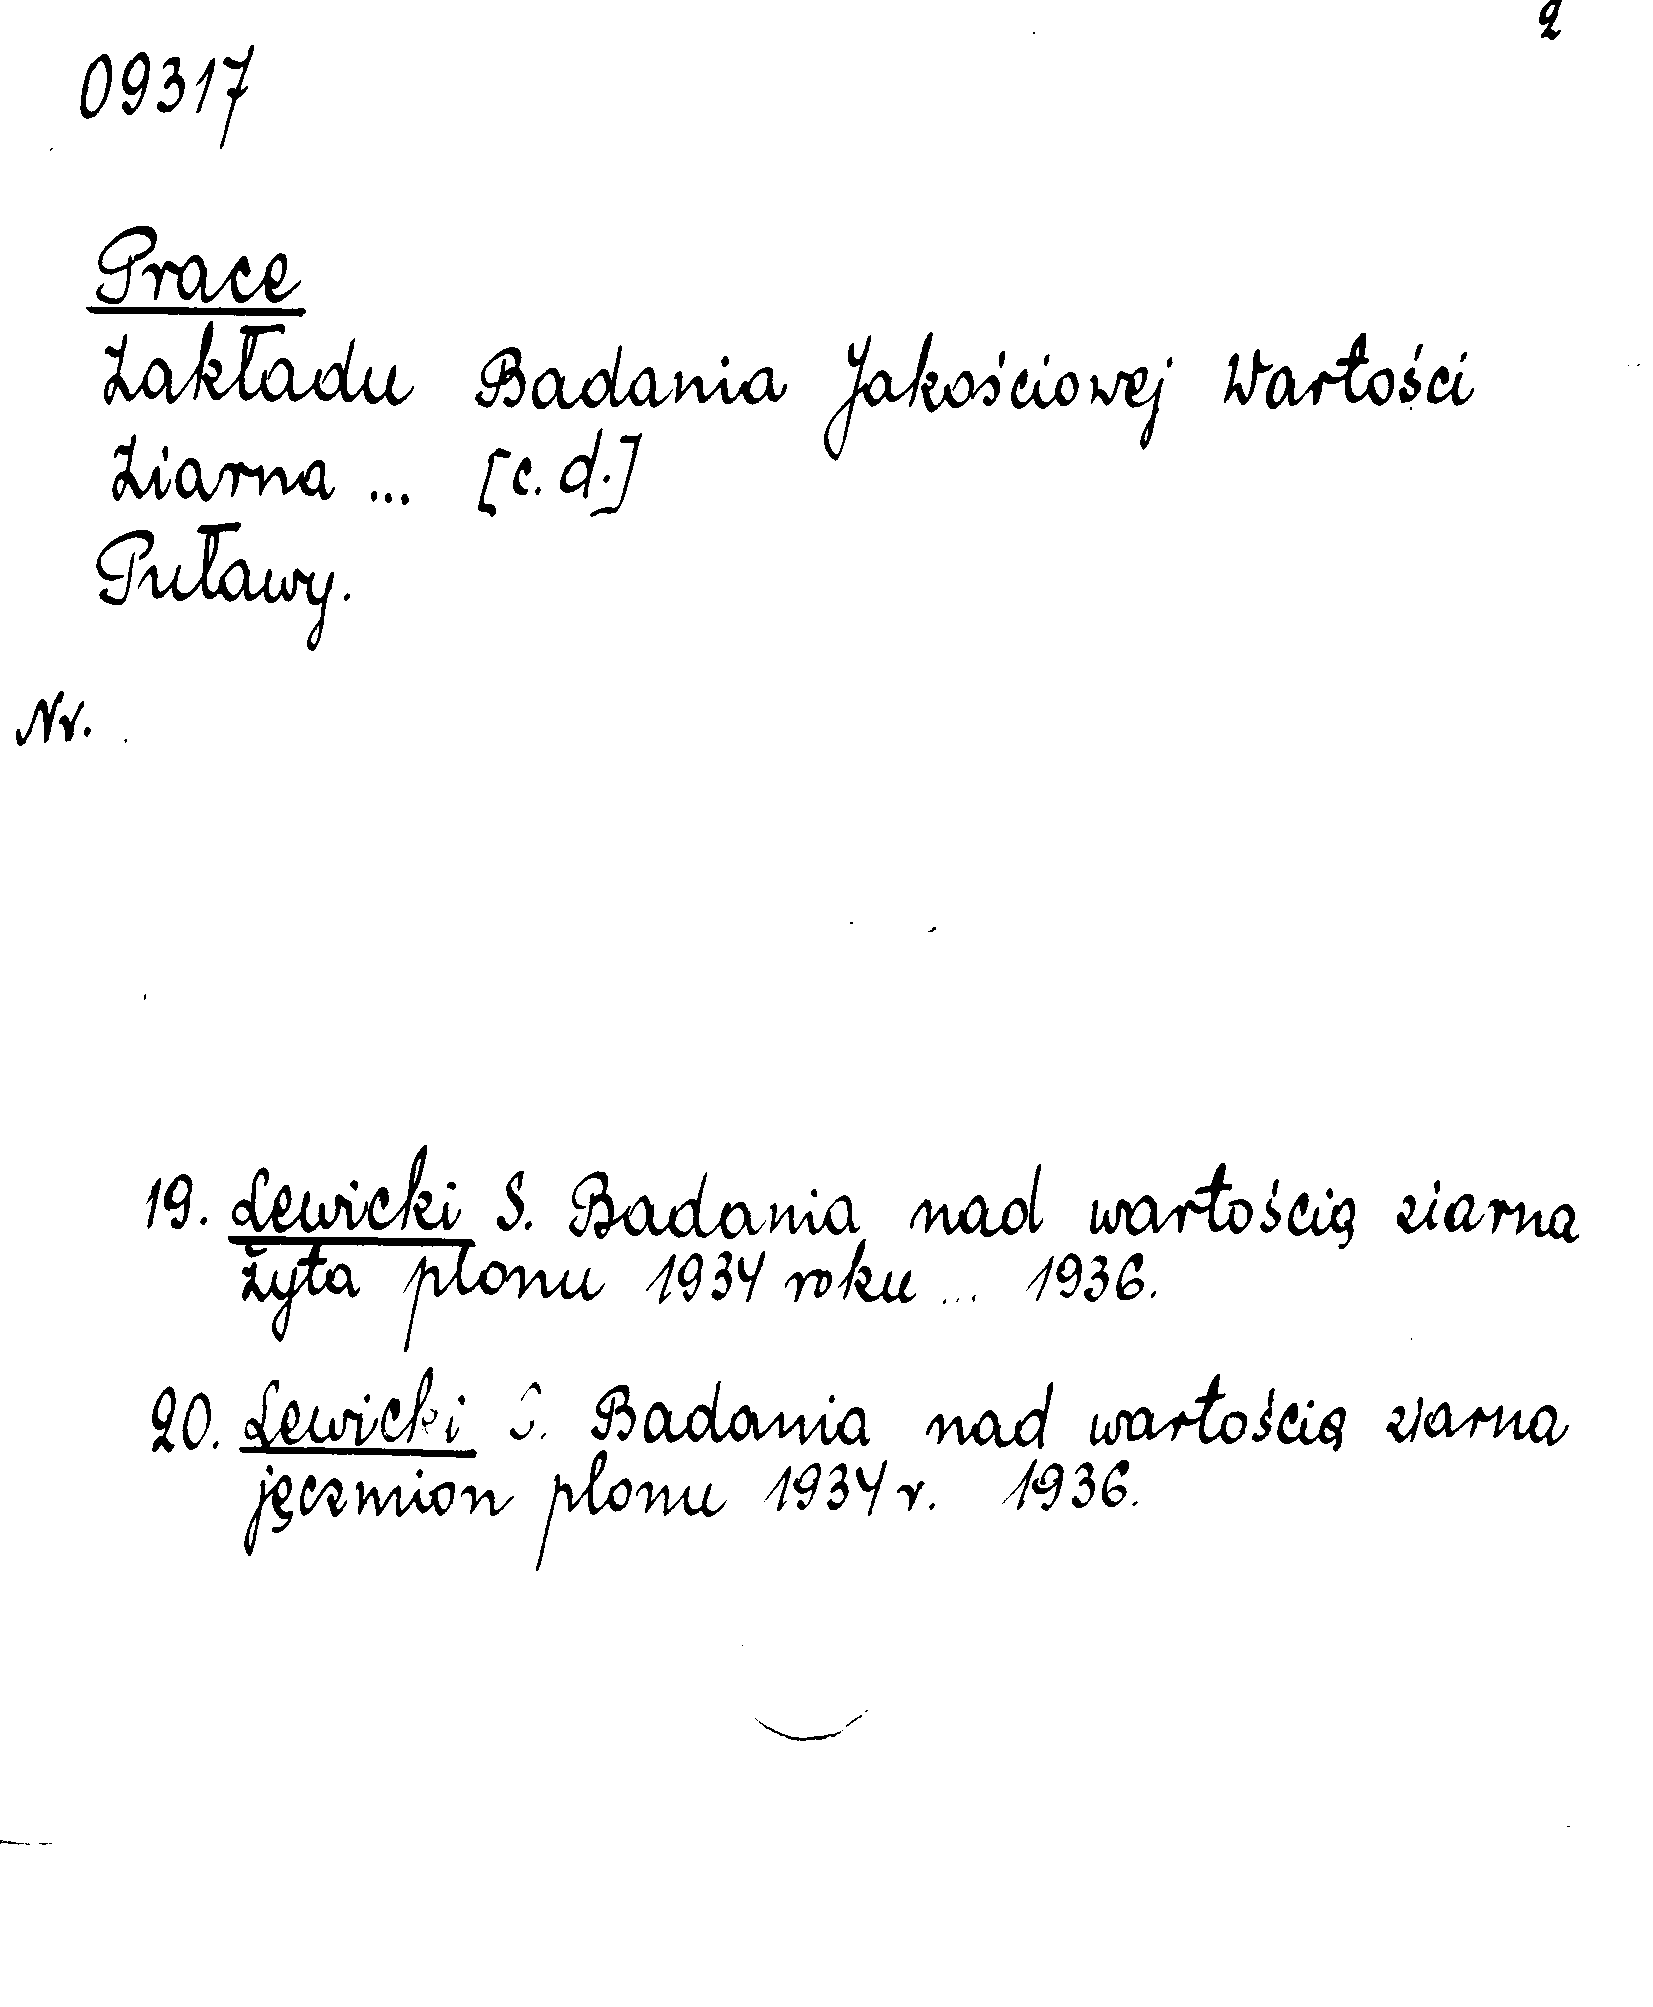 2
09317
Prace
Zakładu Badania Jakościowej Wartości
Ziarna ... [c.d.]
Puławy.
Nr.
19. Lewicki S. Badania nad wartością ziarna
żyta plonu 1934 roku ... 1936.
20. Lewicki S. Badania nad wartością ziarna
jęczmion plonu 1934 r. 1936.